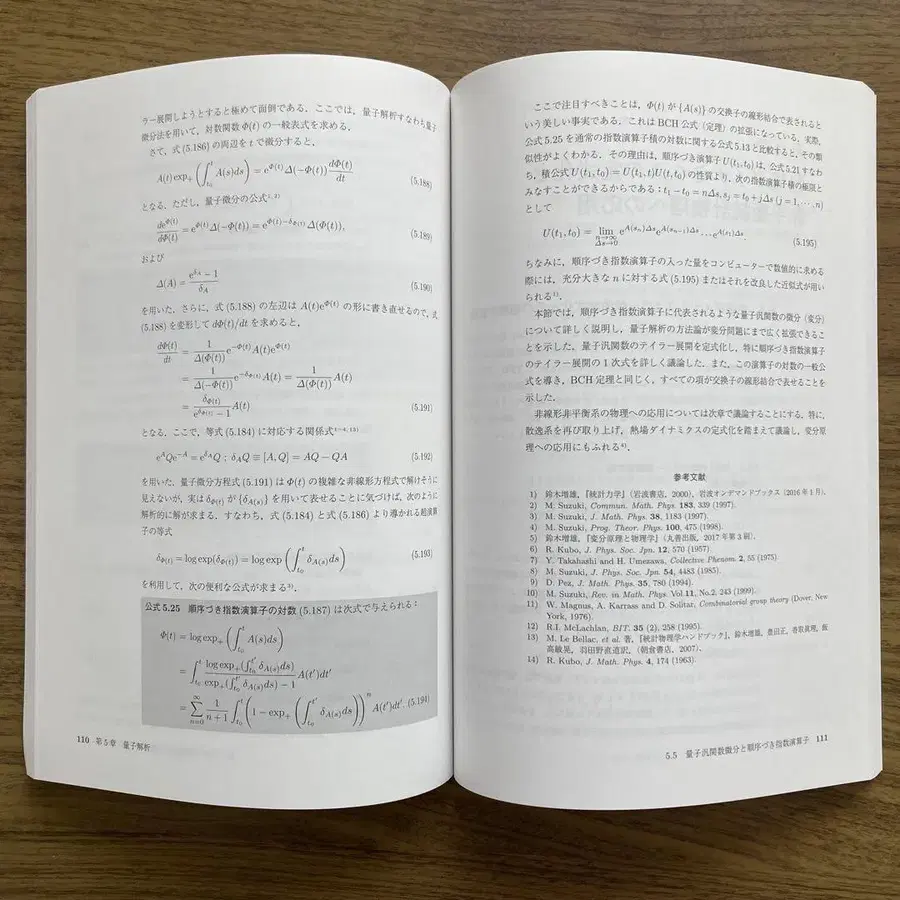 ラー展開しようとすると極めて面倒である．ここでは，量子解析すなわち量子
微分法を用いて，対数関数 Φ(t) の一般表式を求める．
さて，式 (5.186) の両辺を t で微分すると，
A(t) exp₊ (∫_{t₀}^{t} A(s)ds) = e^{Φ(t)} Δ(−Φ(t)) dΦ(t)/dt (5.188)
となる．ただし，量子微分の公式¹,²⁾
de^{Φ(t)}/dΦ(t) = e^{Φ(t)} Δ(−Φ(t)) = e^{Φ(t)−δ_{Φ(t)}} Δ(Φ(t)), (5.189)
および
Δ(A) = (e^{δ_A} − 1)/δ_A (5.190)
を用いた．さらに，式 (5.188) の左辺は A(t)e^{Φ(t)} の形に書き直せるので，式
(5.188) を変形して dΦ(t)/dt を求めると，
dΦ(t)/dt = 1/Δ(Φ(t)) e^{−Φ(t)} A(t) e^{Φ(t)}
= 1/Δ(−Φ(t)) e^{−δ_{Φ(t)}} A(t) = 1/Δ(Φ(t)) A(t)
= δ_{Φ(t)}/(e^{δ_{Φ(t)}} − 1) A(t) (5.191)
となる．ここで，等式 (5.184) に対応する関係式¹⁻⁴,¹³⁾
e^A Q e^{−A} = e^{δ_A} Q ; δ_A Q ≡ [A, Q] = AQ − QA (5.192)
を用いた．量子微分方程式 (5.191) は Φ(t) の複雑な非線形方程式で解けそうに
見えないが，実は δ_{Φ(t)} が {δ_{A(s)}} を用いて表せることに気づけば，次のように
解析的に解が求まる．すなわち，式 (5.184) と式 (5.186) より導かれる超演算
子の等式
δ_{Φ(t)} = log exp(δ_{Φ(t)}) = log exp (∫_{t₀}^{t} δ_{A(s)} ds) (5.193)
を利用して，次の便利な公式が求まる³⁾．
公式 5.25 順序づき指数演算子の対数 (5.187) は次式で与えられる：
Φ(t) = log exp₊ (∫_{t₀}^{t} A(s)ds)
= ∫_{t₀}^{t} log exp₊(∫_{t₀}^{t′} δ_{A(s)}ds)/(exp₊(∫_{t₀}^{t′} δ_{A(s)}ds) − 1) A(t′)dt′
= Σ_{n=0}^{∞} 1/(n+1) ∫_{t₀}^{t} (1 − exp₊ (∫_{t₀}^{t′} δ_{A(s)} ds))ⁿ A(t′)dt′. (5.194)
110 第 5 章 量子解析
ここで注目すべきことは，Φ(t) が {A(s)} の交換子の線形結合で表されると
いう美しい事実である．これは BCH 公式（定理）の拡張になっている．実際，
公式 5.25 を通常の指数演算子積の対数に関する公式 5.13 と比較すると，その類
似性がよくわかる．その理由は，順序づき演算子 U(t₁, t₀) は，公式 5.21 すなわ
ち，積公式 U(t₁, t₀) = U(t₁, t)U(t, t₀) の性質より，次の指数演算子積の極限と
みなすことができるからである：t₁ − t₀ = nΔs, sⱼ = t₀ + jΔs (j = 1, ⋯, n)
として
U(t₁, t₀) = lim_{n→∞ Δs→0} e^{A(sₙ)Δs} e^{A(sₙ₋₁)Δs} … e^{A(s₁)Δs}. (5.195)
ちなみに，順序づき指数演算子の入った量をコンピューターで数値的に求める
際には，充分大きな n に対する式 (5.195) またはそれを改良した近似式が用い
られる¹⁾．
本節では，順序づき指数演算子に代表されるような量子汎関数の微分（変分）
について詳しく説明し，量子解析の方法論が変分問題にまで広く拡張できるこ
とを示した．量子汎関数のテイラー展開を定式化し，特に順序づき指数演算子
のテイラー展開の 1 次式を詳しく議論した．また，この演算子の対数の一般公
式を導き，BCH 定理と同じく，すべての項が交換子の線形結合で表せることを
示した．
非線形非平衡系の物理への応用については次章で議論することにする．特に，
散逸系を再び取り上げ，熱場ダイナミクスの定式化を踏まえて議論し，変分原
理への応用にもふれる⁴⁾．
参考文献
1) 鈴木増雄，『統計力学』（岩波書店，2000），岩波オンデマンドブックス（2016 年 1 月）．
2) M. Suzuki, Commun. Math. Phys. 183, 339 (1997).
3) M. Suzuki, J. Math. Phys. 38, 1183 (1997).
4) M. Suzuki, Prog. Theor. Phys. 100, 475 (1998).
5) 鈴木増雄，『変分原理と物理学』（丸善出版，2017 年第 3 刷）．
6) R. Kubo, J. Phys. Soc. Jpn. 12, 570 (1957).
7) Y. Takahashi and H. Umezawa, Collective Phenom. 2, 55 (1975).
8) M. Suzuki, J. Phys. Soc. Jpn. 54, 4483 (1985).
9) D. Pez, J. Math. Phys. 35, 780 (1994).
10) M. Suzuki, Rev. in Math. Phys. Vol.11, No.2, 243 (1999).
11) W. Magnus, A. Karrass and D. Solitar, Combinatorial group theory (Dover, New
York, 1976).
12) R.I. McLachlan, BIT. 35 (2), 258 (1995).
13) M. Le Bellac, et al. 著，『統計物理学ハンドブック』，鈴木増雄，豊田正，香取眞理，飯
高敏晃，羽田野直道訳，（朝倉書店，2007）．
14) R. Kubo, J. Math. Phys. 4, 174 (1963).
5.5 量子汎関数微分と順序づき指数演算子 111